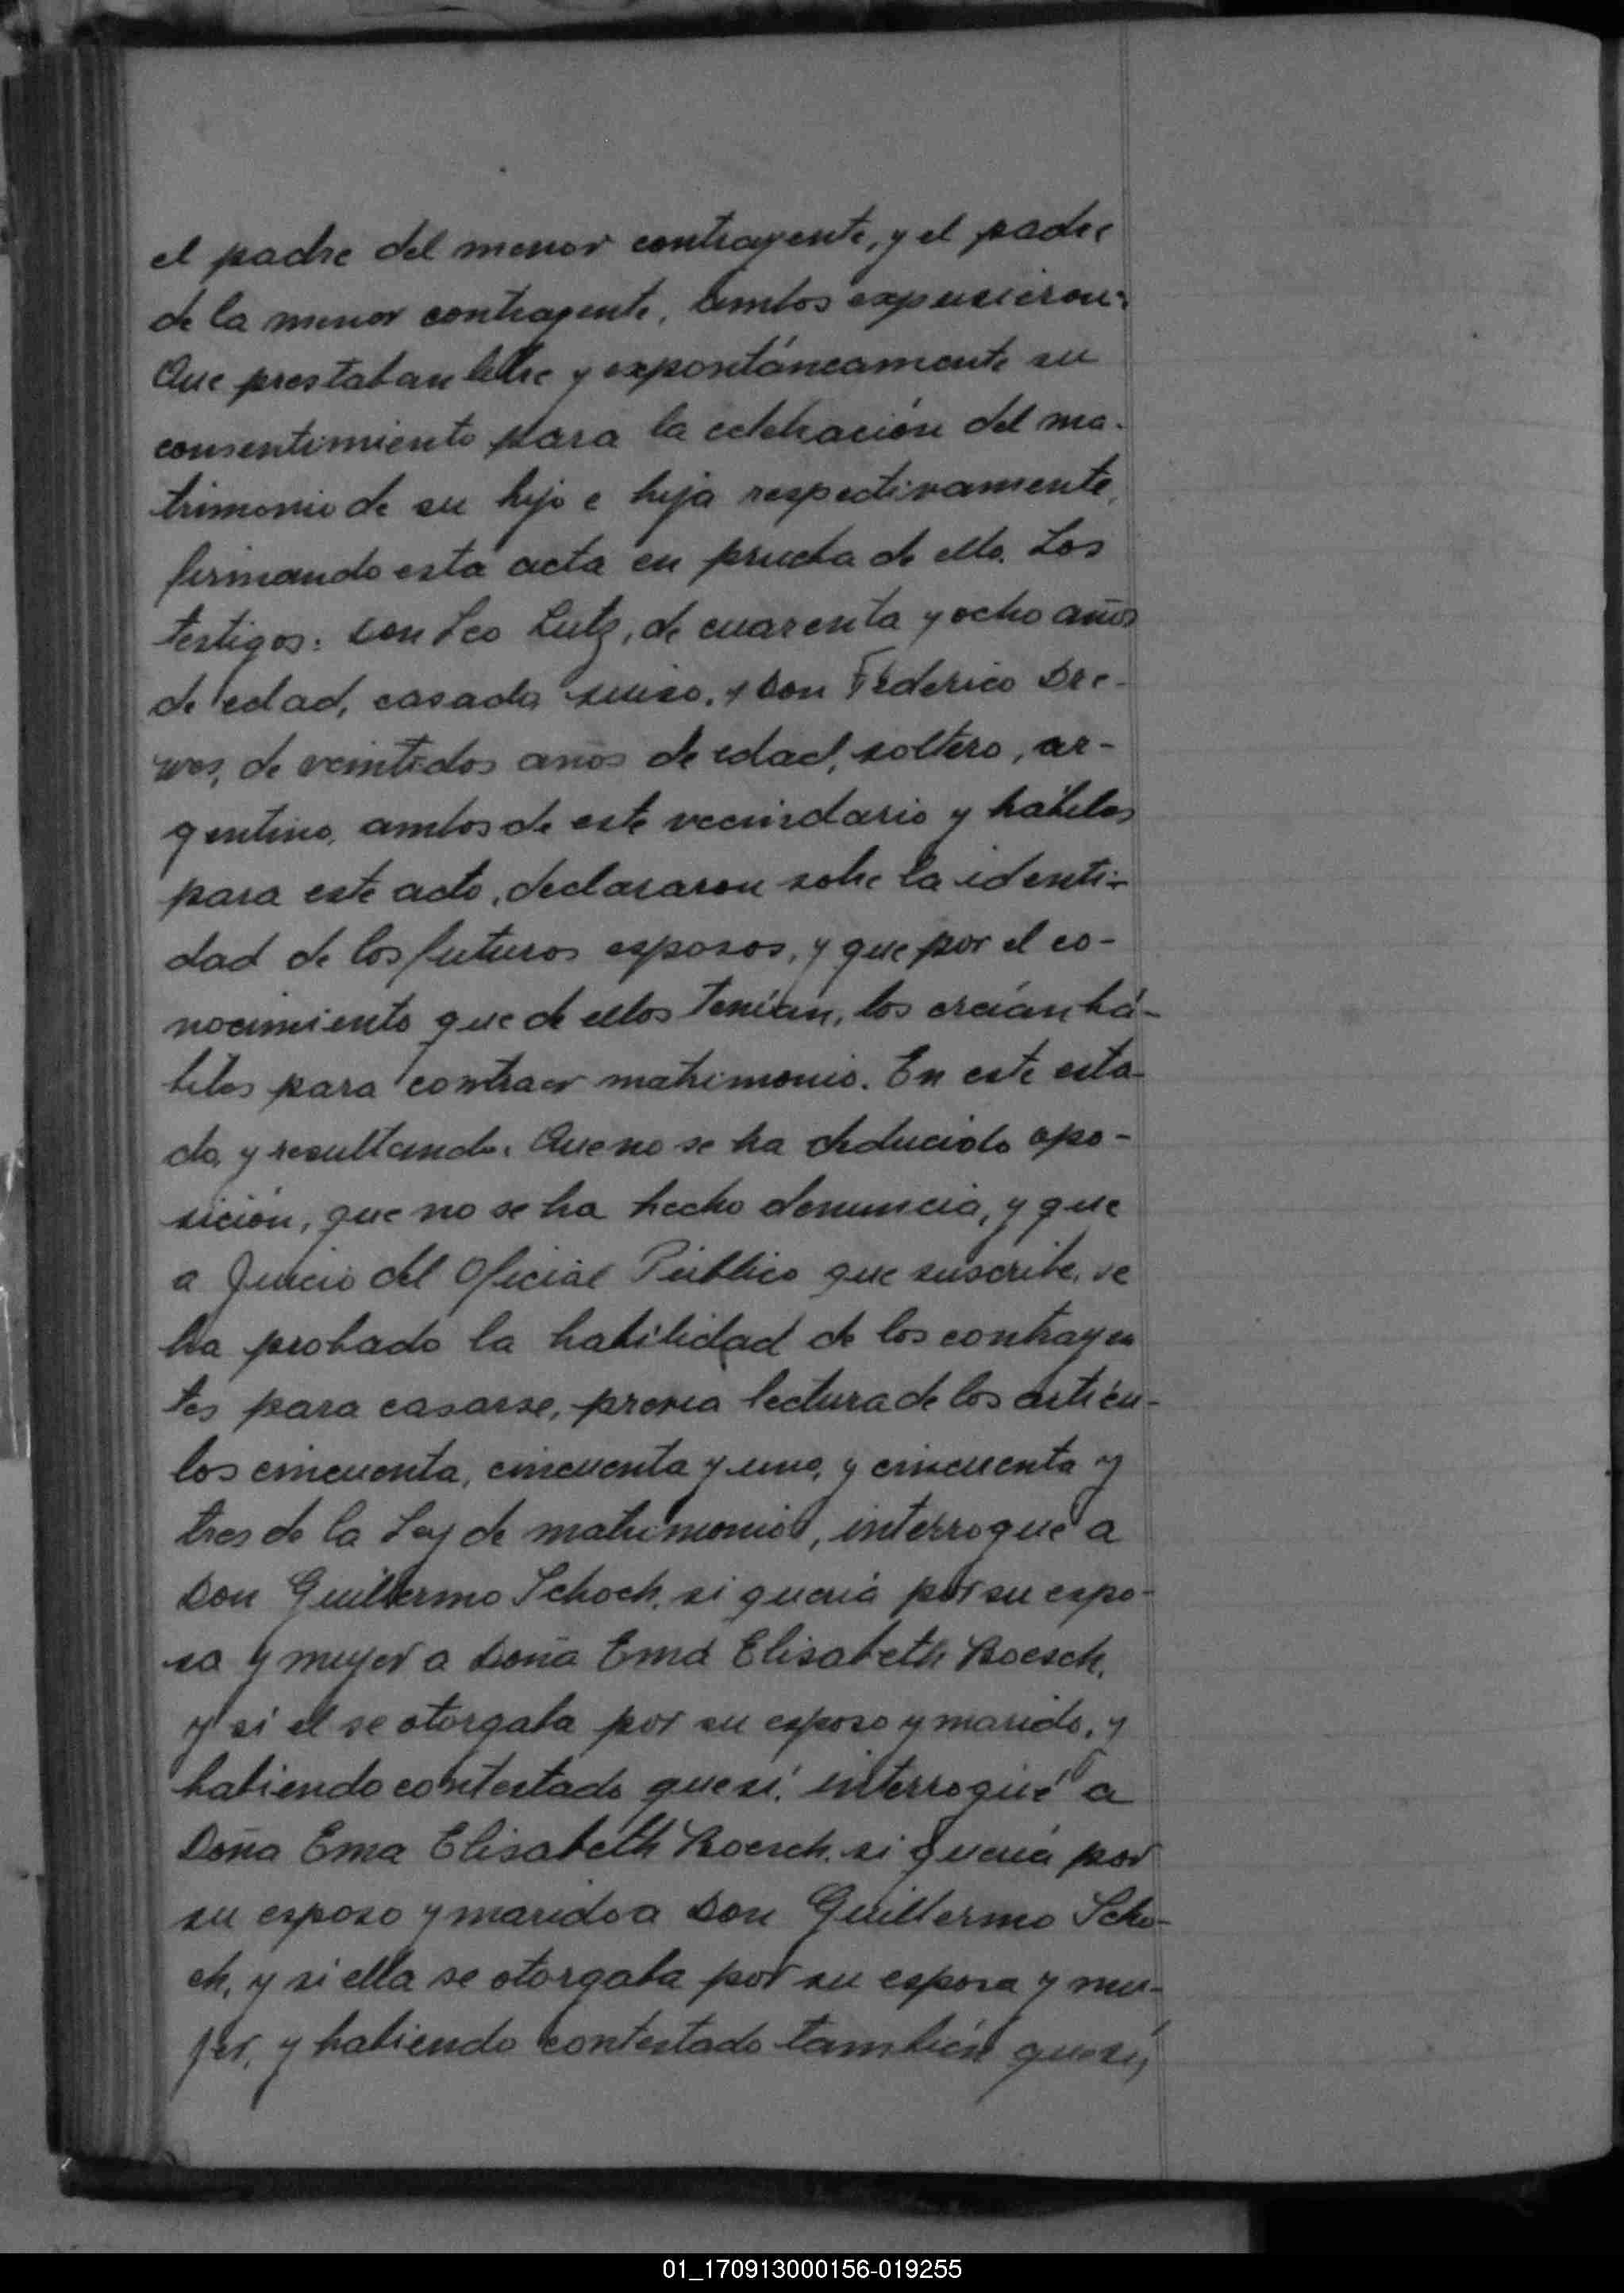 el padre del menor contrayente, y el padre
de la menor contrayente, ambos expusieron:
Que prestaban libre y expontáneamente su
consentimiento para la celebración del ma-
trimonio de su hijo e hija respectivamente,
firmando esta acta en prueba de ello. Los
testigos: Don Leo Lutz, de cuarenta y ocho años
de edad, casado, suizo, y Don Federico Dre-
wes, de veintidos años de edad, soltero, ar-
gentino, ambos de este vecindario y hábiles
para este acto, declararon sobre la identi-
dad de los futuros esposos, y que por el co-
nocimiento que de ellos tenían, los creían há-
biles para contraer matrimonio. En este esta-
do, y resultando: Que no se ha deducido opo-
sición, que no se ha hecho denuncia, y que
a juicio del Oficial Público que suscribe, se
ha probado la habilidad de los contrayen
tes para casarse, previa lectura de los artícu-
los cincuenta, cincuenta y uno, y cincuenta y
tres de la Ley de matrimonio, interrogué a
Don Guillermo Schoch, si quería por su espo-
sa y mujer a Doña Ema Elisabeth Boesch,
y si el se otorgaba por su esposo y marido, y
habiendo contestado que sí, interrogué a
Doña Ema Elisabeth Boesch, si quería por
su esposo y marido a Don Guillermo Scho-
ch, y si ella se otorgaba por su esposa y mu-
jer, y habiendo contestado también que sí,
01_170913000156-019255